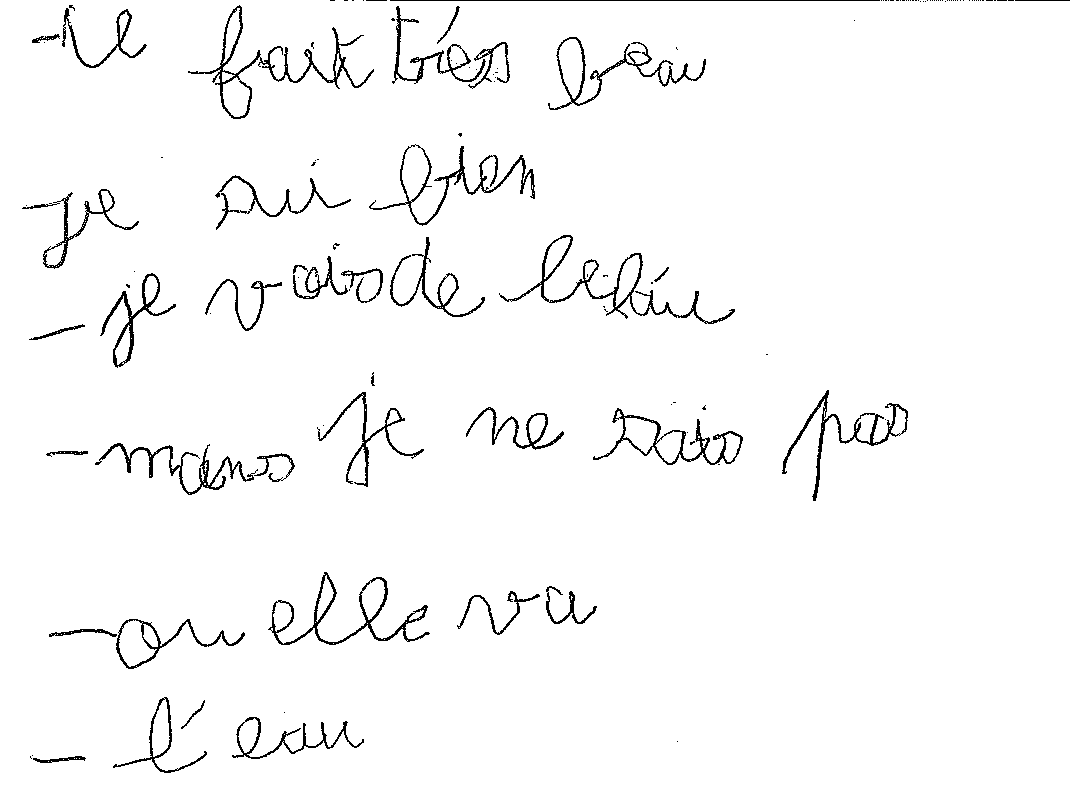 -Il fait trés beau
-je sui bien
- je vois de
- mans je ne sais pas
- ou elle va
- l'eau